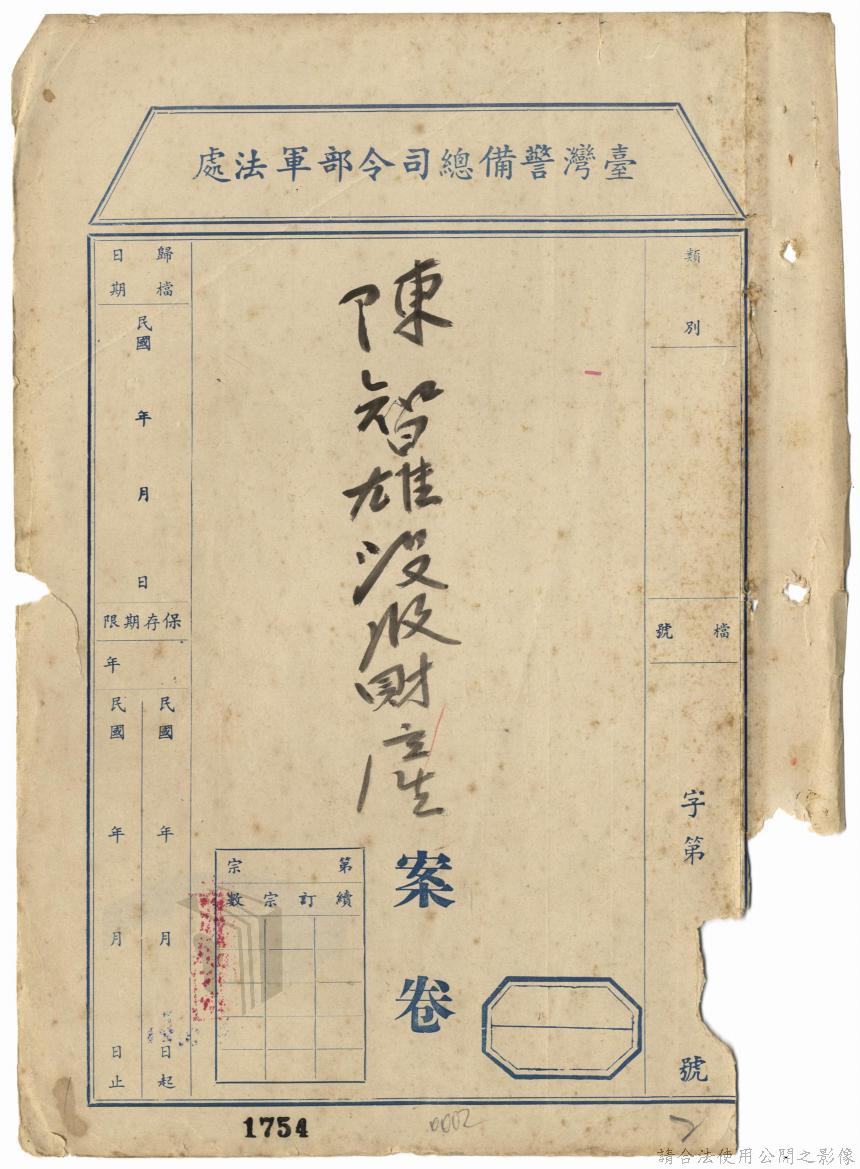 臺灣警備總司令部軍法處
類別
檔號
字第
號
陳智雄沒收財產
案卷
第宗
續訂宗數
歸檔日期
民國
年
月
日
保存期限
年
民國
年
月
日起
民國
年
月
日止
1754
0002
2
請合法使用公開之影像